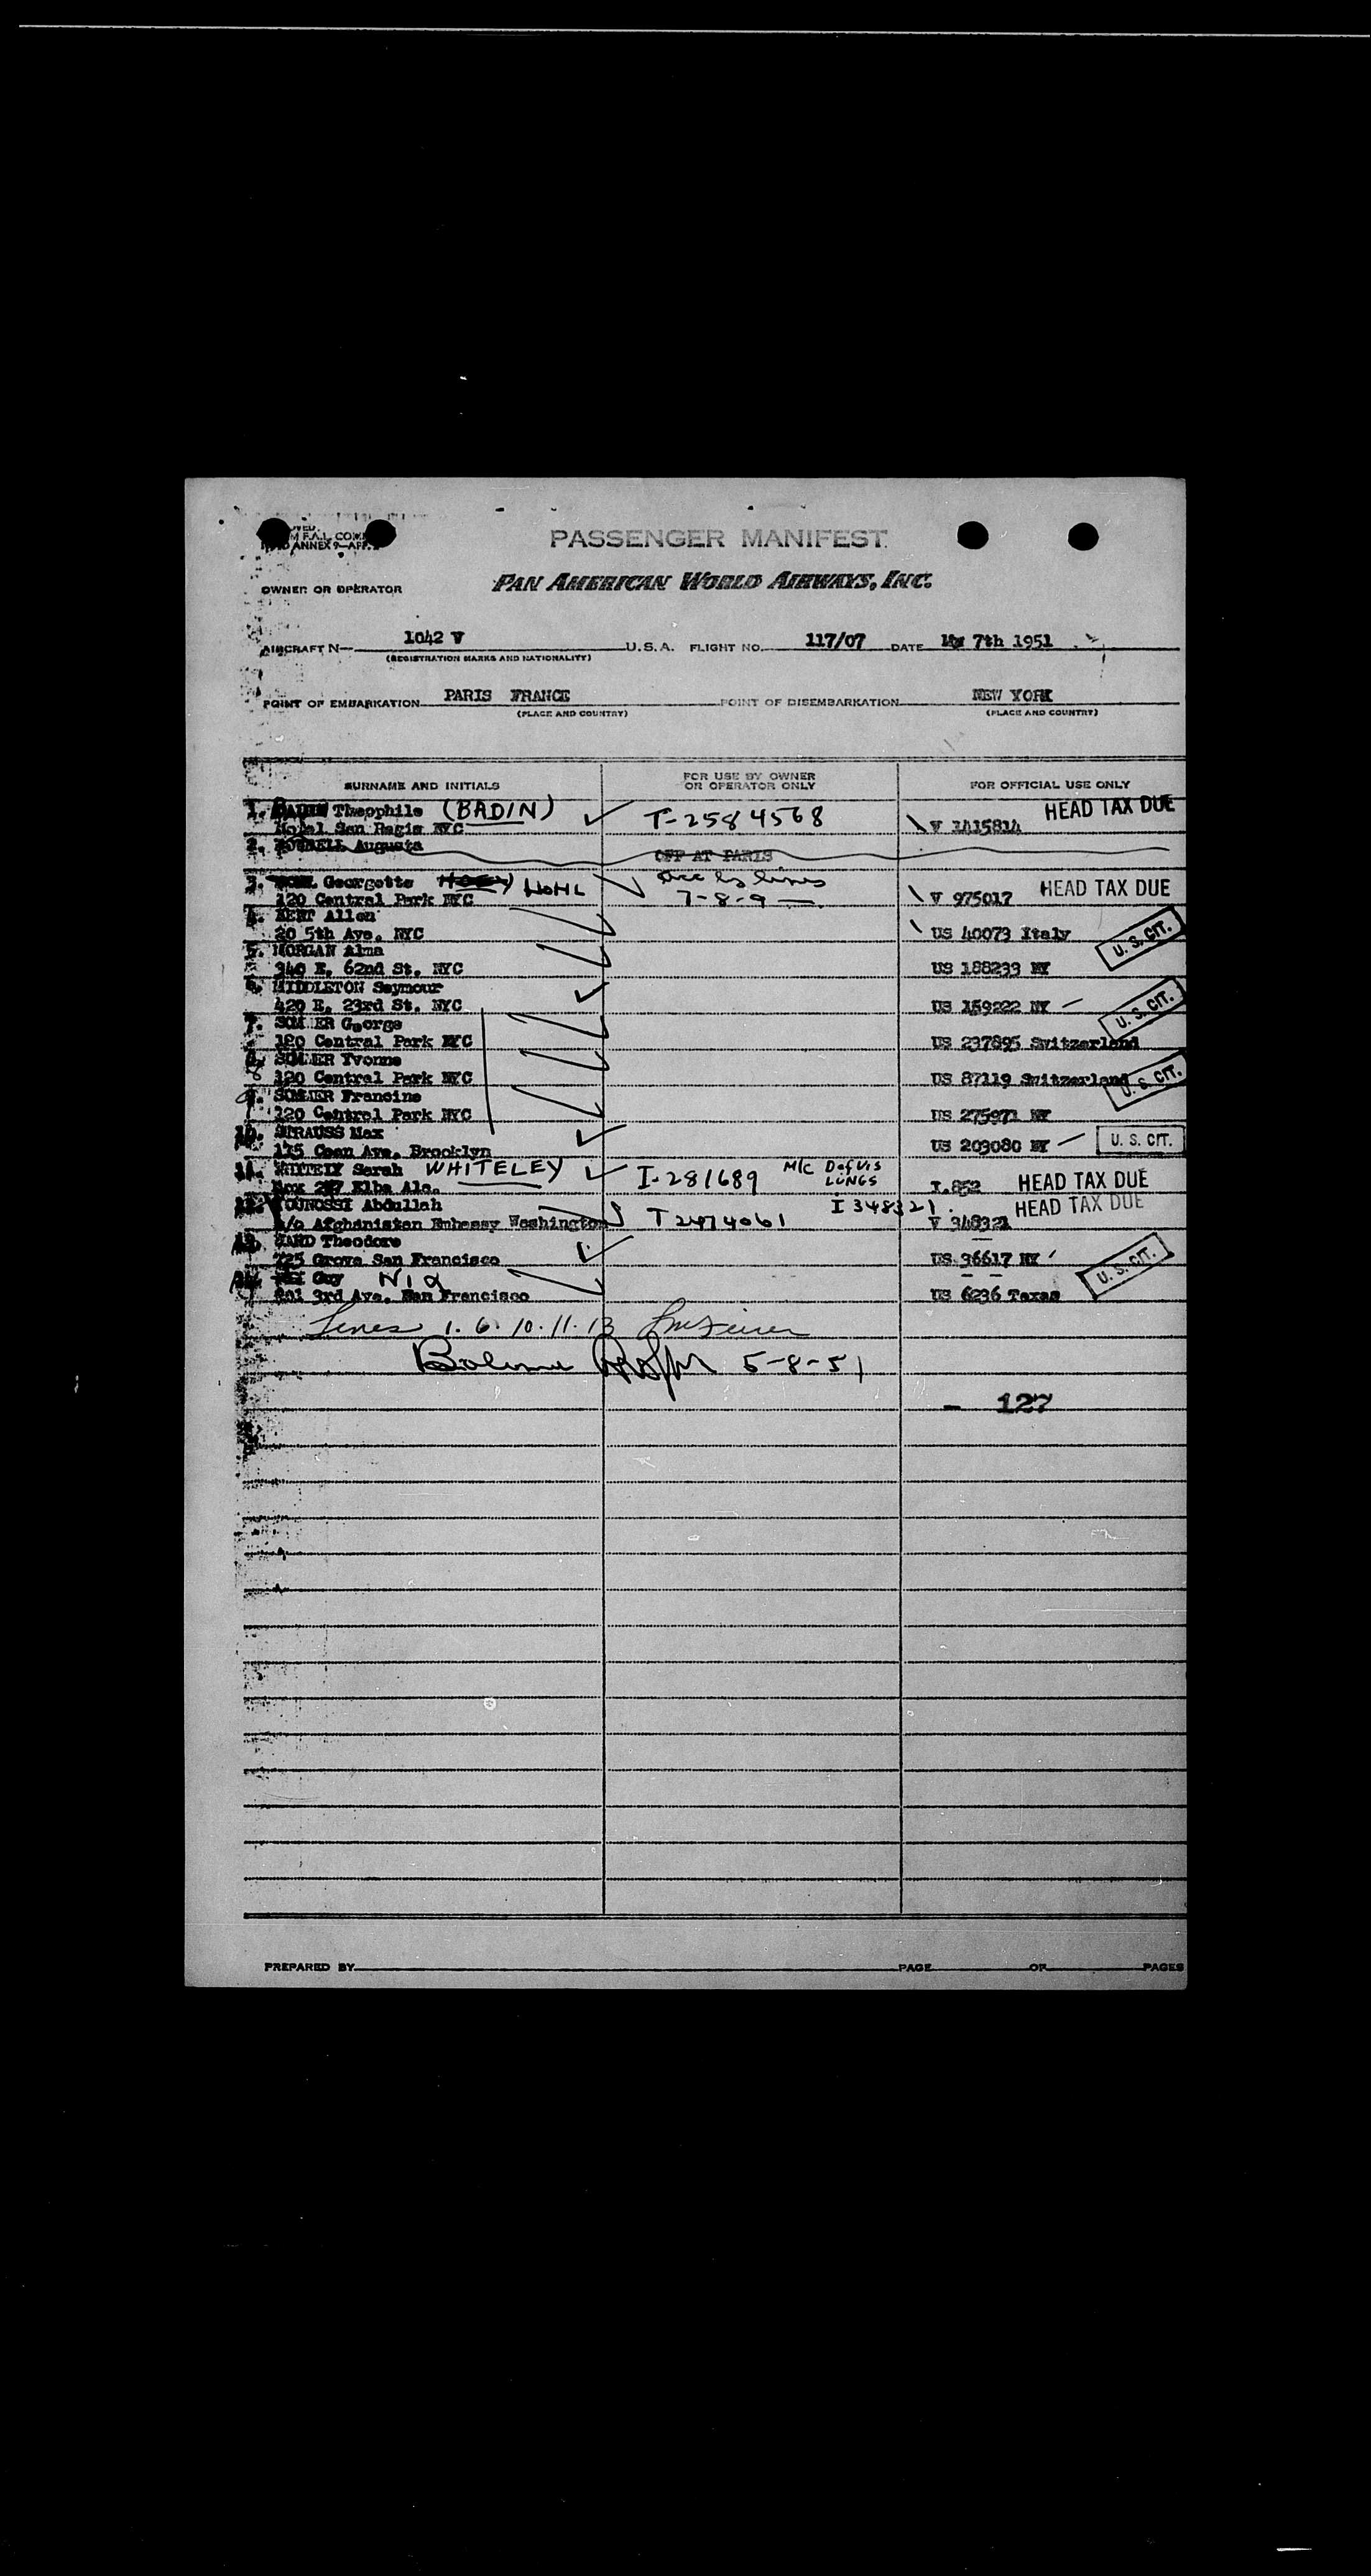 PASSENGER MANIFEST
PAN AMERICAN WORLD AIRWAYS, INC.
OWNER OR OPERATOR
AIRCRAFT N— 1042 V U.S.A. FLIGHT NO. 117/07 DATE 7th 1951
(REGISTRATION MARKS AND NATIONALITY)
POINT OF EMBARKATION PARIS FRANCE POINT OF DISEMBARKATION NEW YORK
(PLACE AND COUNTRY) (PLACE AND COUNTRY)
SURNAME AND INITIALS FOR USE BY OWNER OR OPERATOR ONLY FOR OFFICIAL USE ONLY
1. BADIN Theophile (BADIN) T-2584568 HEAD TAX DUE
Hotel San Regis NYC V 1415814
2. Augusta OFF AT PARIS
3. Georgette HOHL see lines
120 Central Park NYC 7-8-9 V 975017 HEAD TAX DUE
4. KENT Allen
20 5th Ave. NYC US 40073 Italy U. S. CIT.
5. MORGAN Alma
340 E. 62nd St. NYC US 188233 NY
6. MIDDLETON Seymour
420 E. 23rd St. NYC US 159222 NY U. S. CIT.
7. George
120 Central Park NYC US 237895 Switzerland
8. Yvonne
120 Central Park NYC US 87119 Switzerland U. S. CIT.
9. Francine
120 Central Park NYC US 275971 NY
10. STRAUSS Max
Ave. Brooklyn US 203080 NY U. S. CIT.
11. Sarah WHITELEY I-281689 M/C Def Vis LUNGS
Box Elba Ala. I.852 HEAD TAX DUE
12. YOUNOSSI Abdullah I 348321 HEAD TAX DUE
c/o Afghanistan Embassy Washington T2474061 V 348321
13. Theodore
725 Grove San Francisco US 36617 NY U. S. CIT.
14. Guy
801 3rd Ave. San Francisco US 6236 Texas
Lines 1. 6. 10. 11. 13
5-8-51
- 127
PREPARED BY PAGE OF PAGES